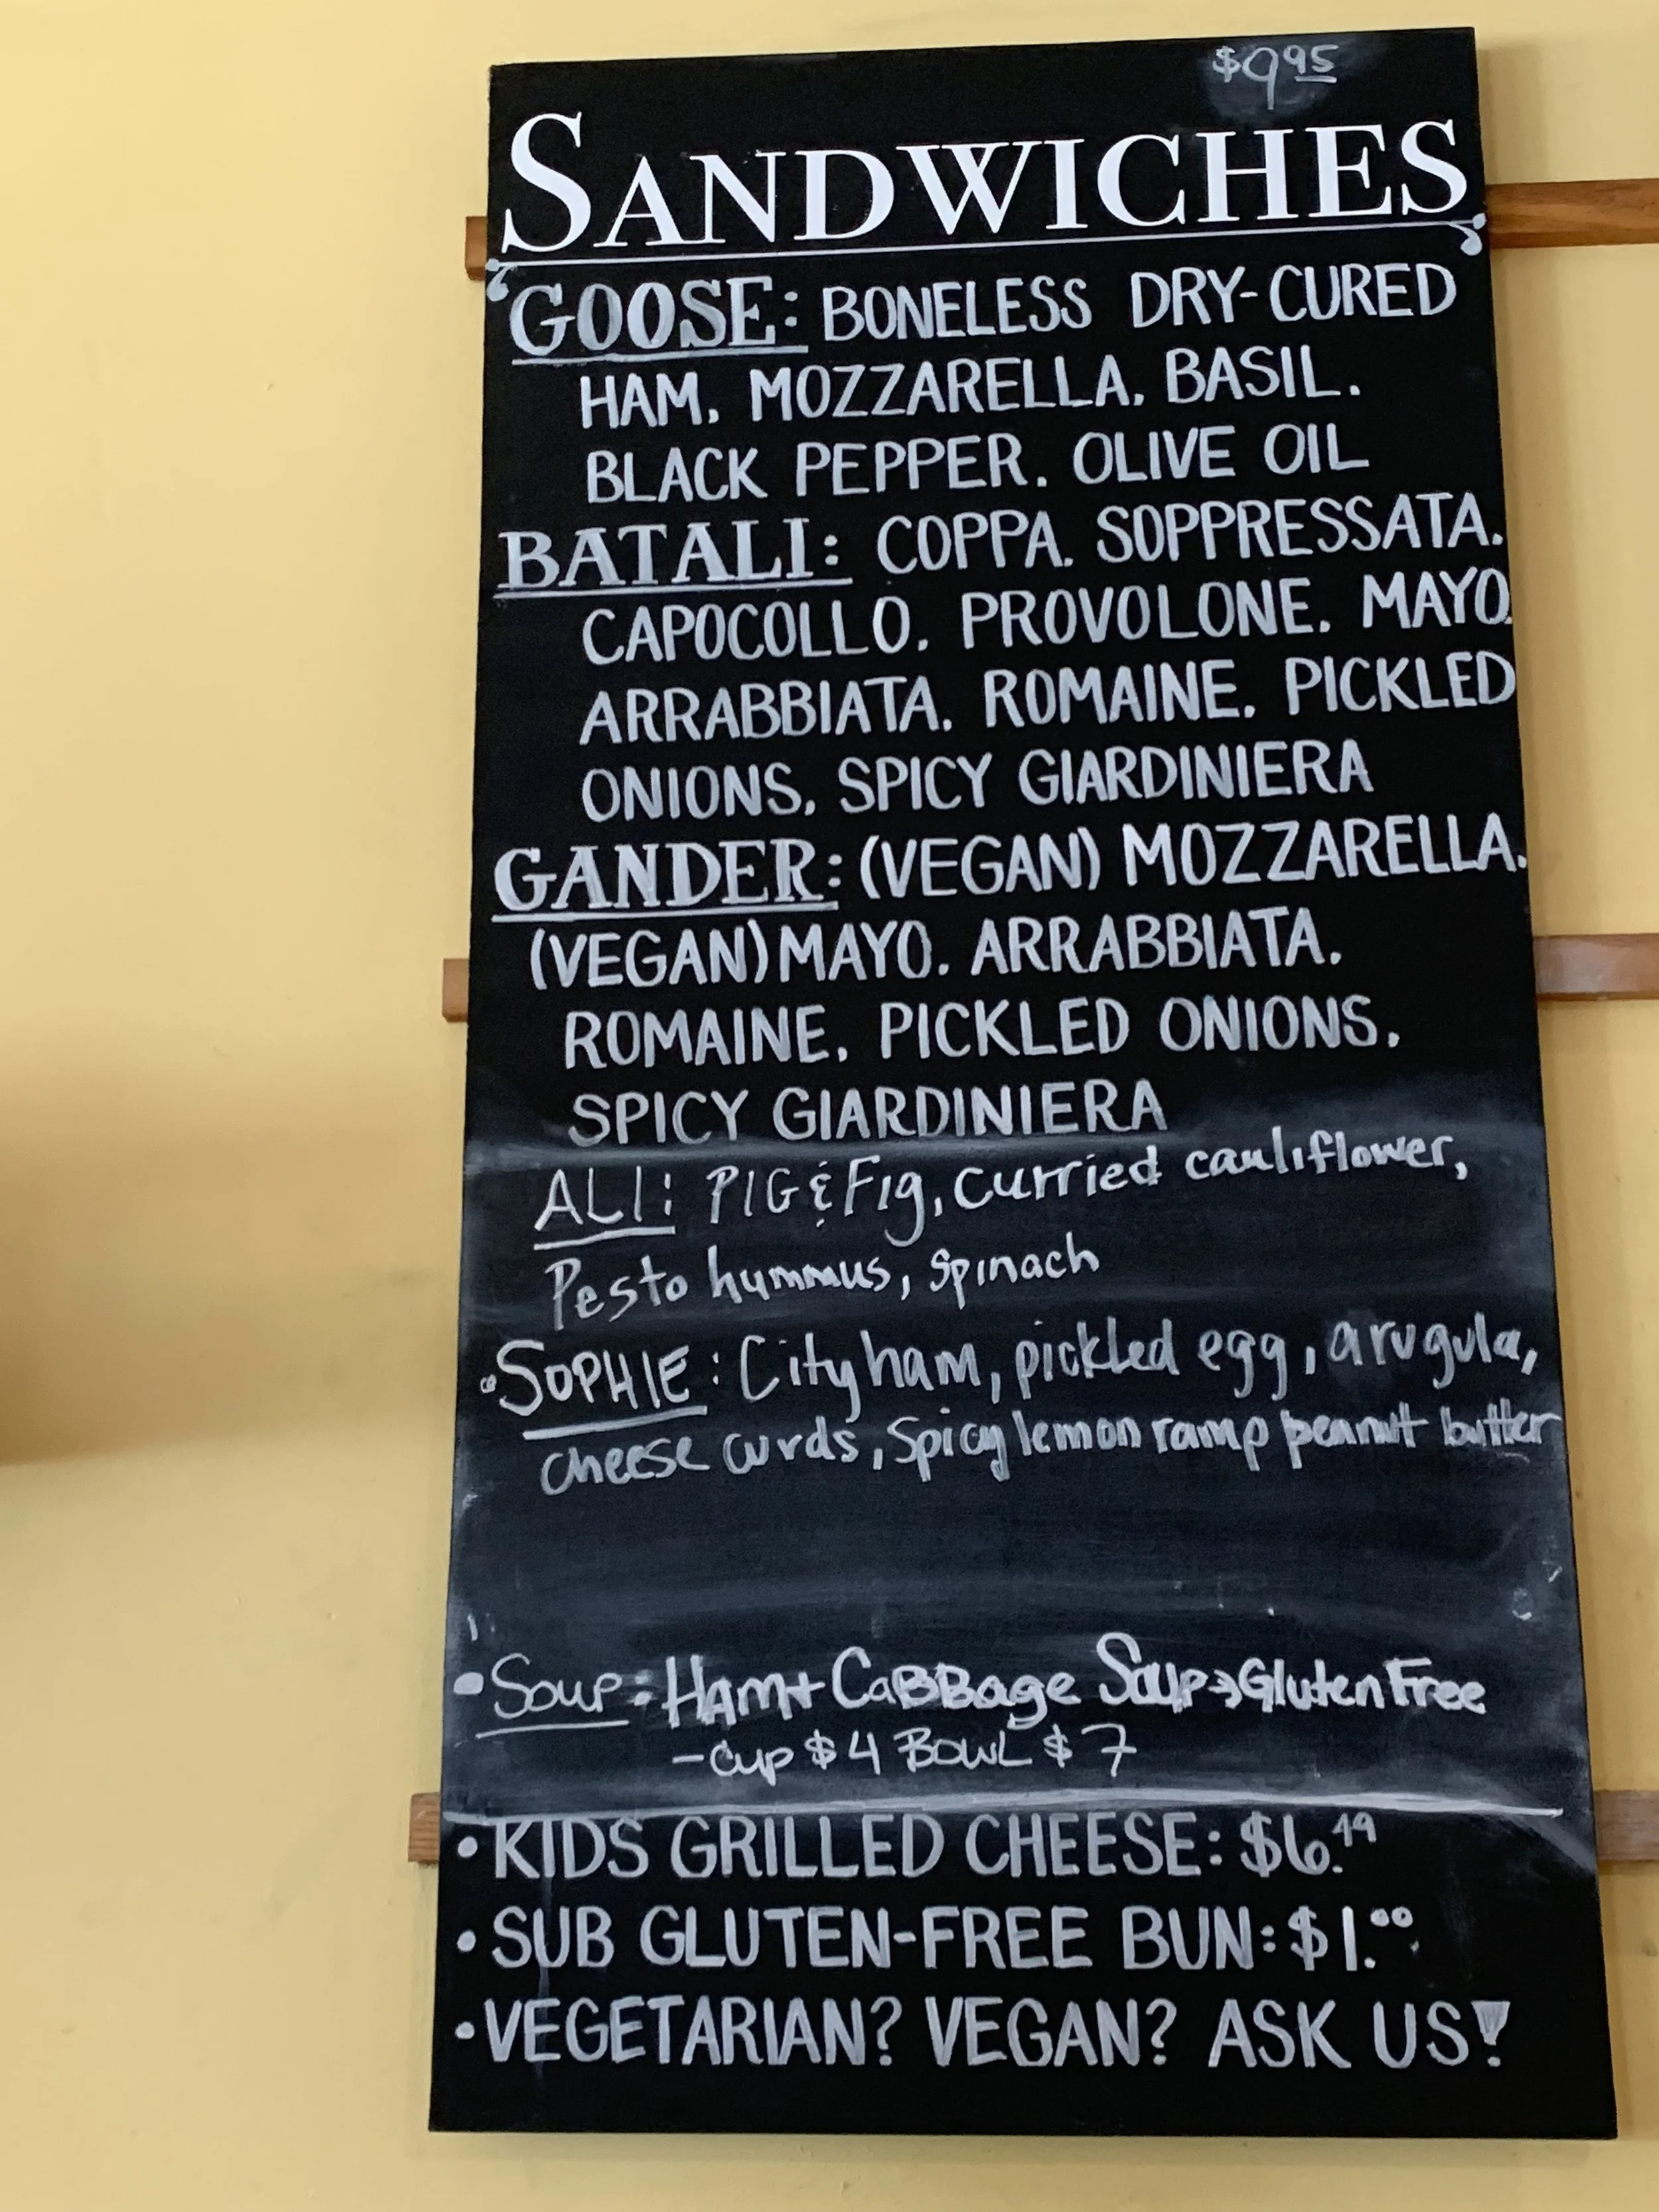 $9.95
SANDWICHES
GOOSE: BONELESS DRY-CURED
HAM. MOZZARELLA. BASIL.
BLACK PEPPER. OLIVE OIL
BATALI: COPPA. SOPPRESSATA.
CAPOCOLLO. PROVOLONE. MAYO.
ARRABBIATA. ROMAINE. PICKLED
ONIONS. SPICY GIARDINIERA
GANDER: (VEGAN) MOZZARELLA.
(VEGAN) MAYO. ARRABBIATA.
ROMAINE. PICKLED ONIONS.
SPICY GIARDINIERA
ALI: PIG & Fig, curried cauliflower,
Pesto hummus, spinach
• SOPHIE: City ham, pickled egg, arugula,
cheese curds, spicy lemon ramp peanut butter
• Soup: Ham + Cabbage Soup → Gluten Free
- Cup $4 Bowl $7
• KIDS GRILLED CHEESE: $6.49
• SUB GLUTEN-FREE BUN: $1.00
• VEGETARIAN? VEGAN? ASK US!